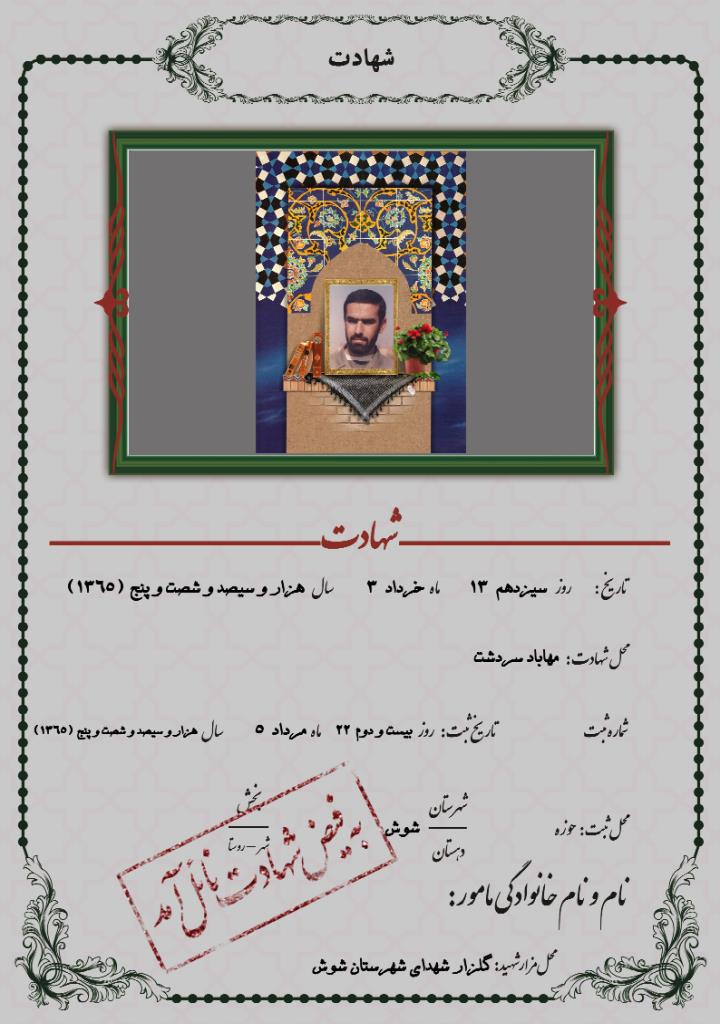 شهادت
شهادت
تاریخ: روز سیزدهم ۱۳ ماه خرداد ۳ سال هزار و سیصد و شصت و پنج (۱۳۶۵)
محل شهادت: مهاباد سردشت
شماره ثبت تاریخ ثبت: روز بیست و دوم ۲۲ ماه مرداد ۵ سال هزار و سیصد و شصت و پنج (۱۳۶۵)
محل ثبت: حوزه شهرستان شوش بخش
دهستان شهر - روستا
به فیض شهادت نائل آمد
نام و نام خانوادگی مامور:
محل مزار شهید: گلزار شهدای شهرستان شوش